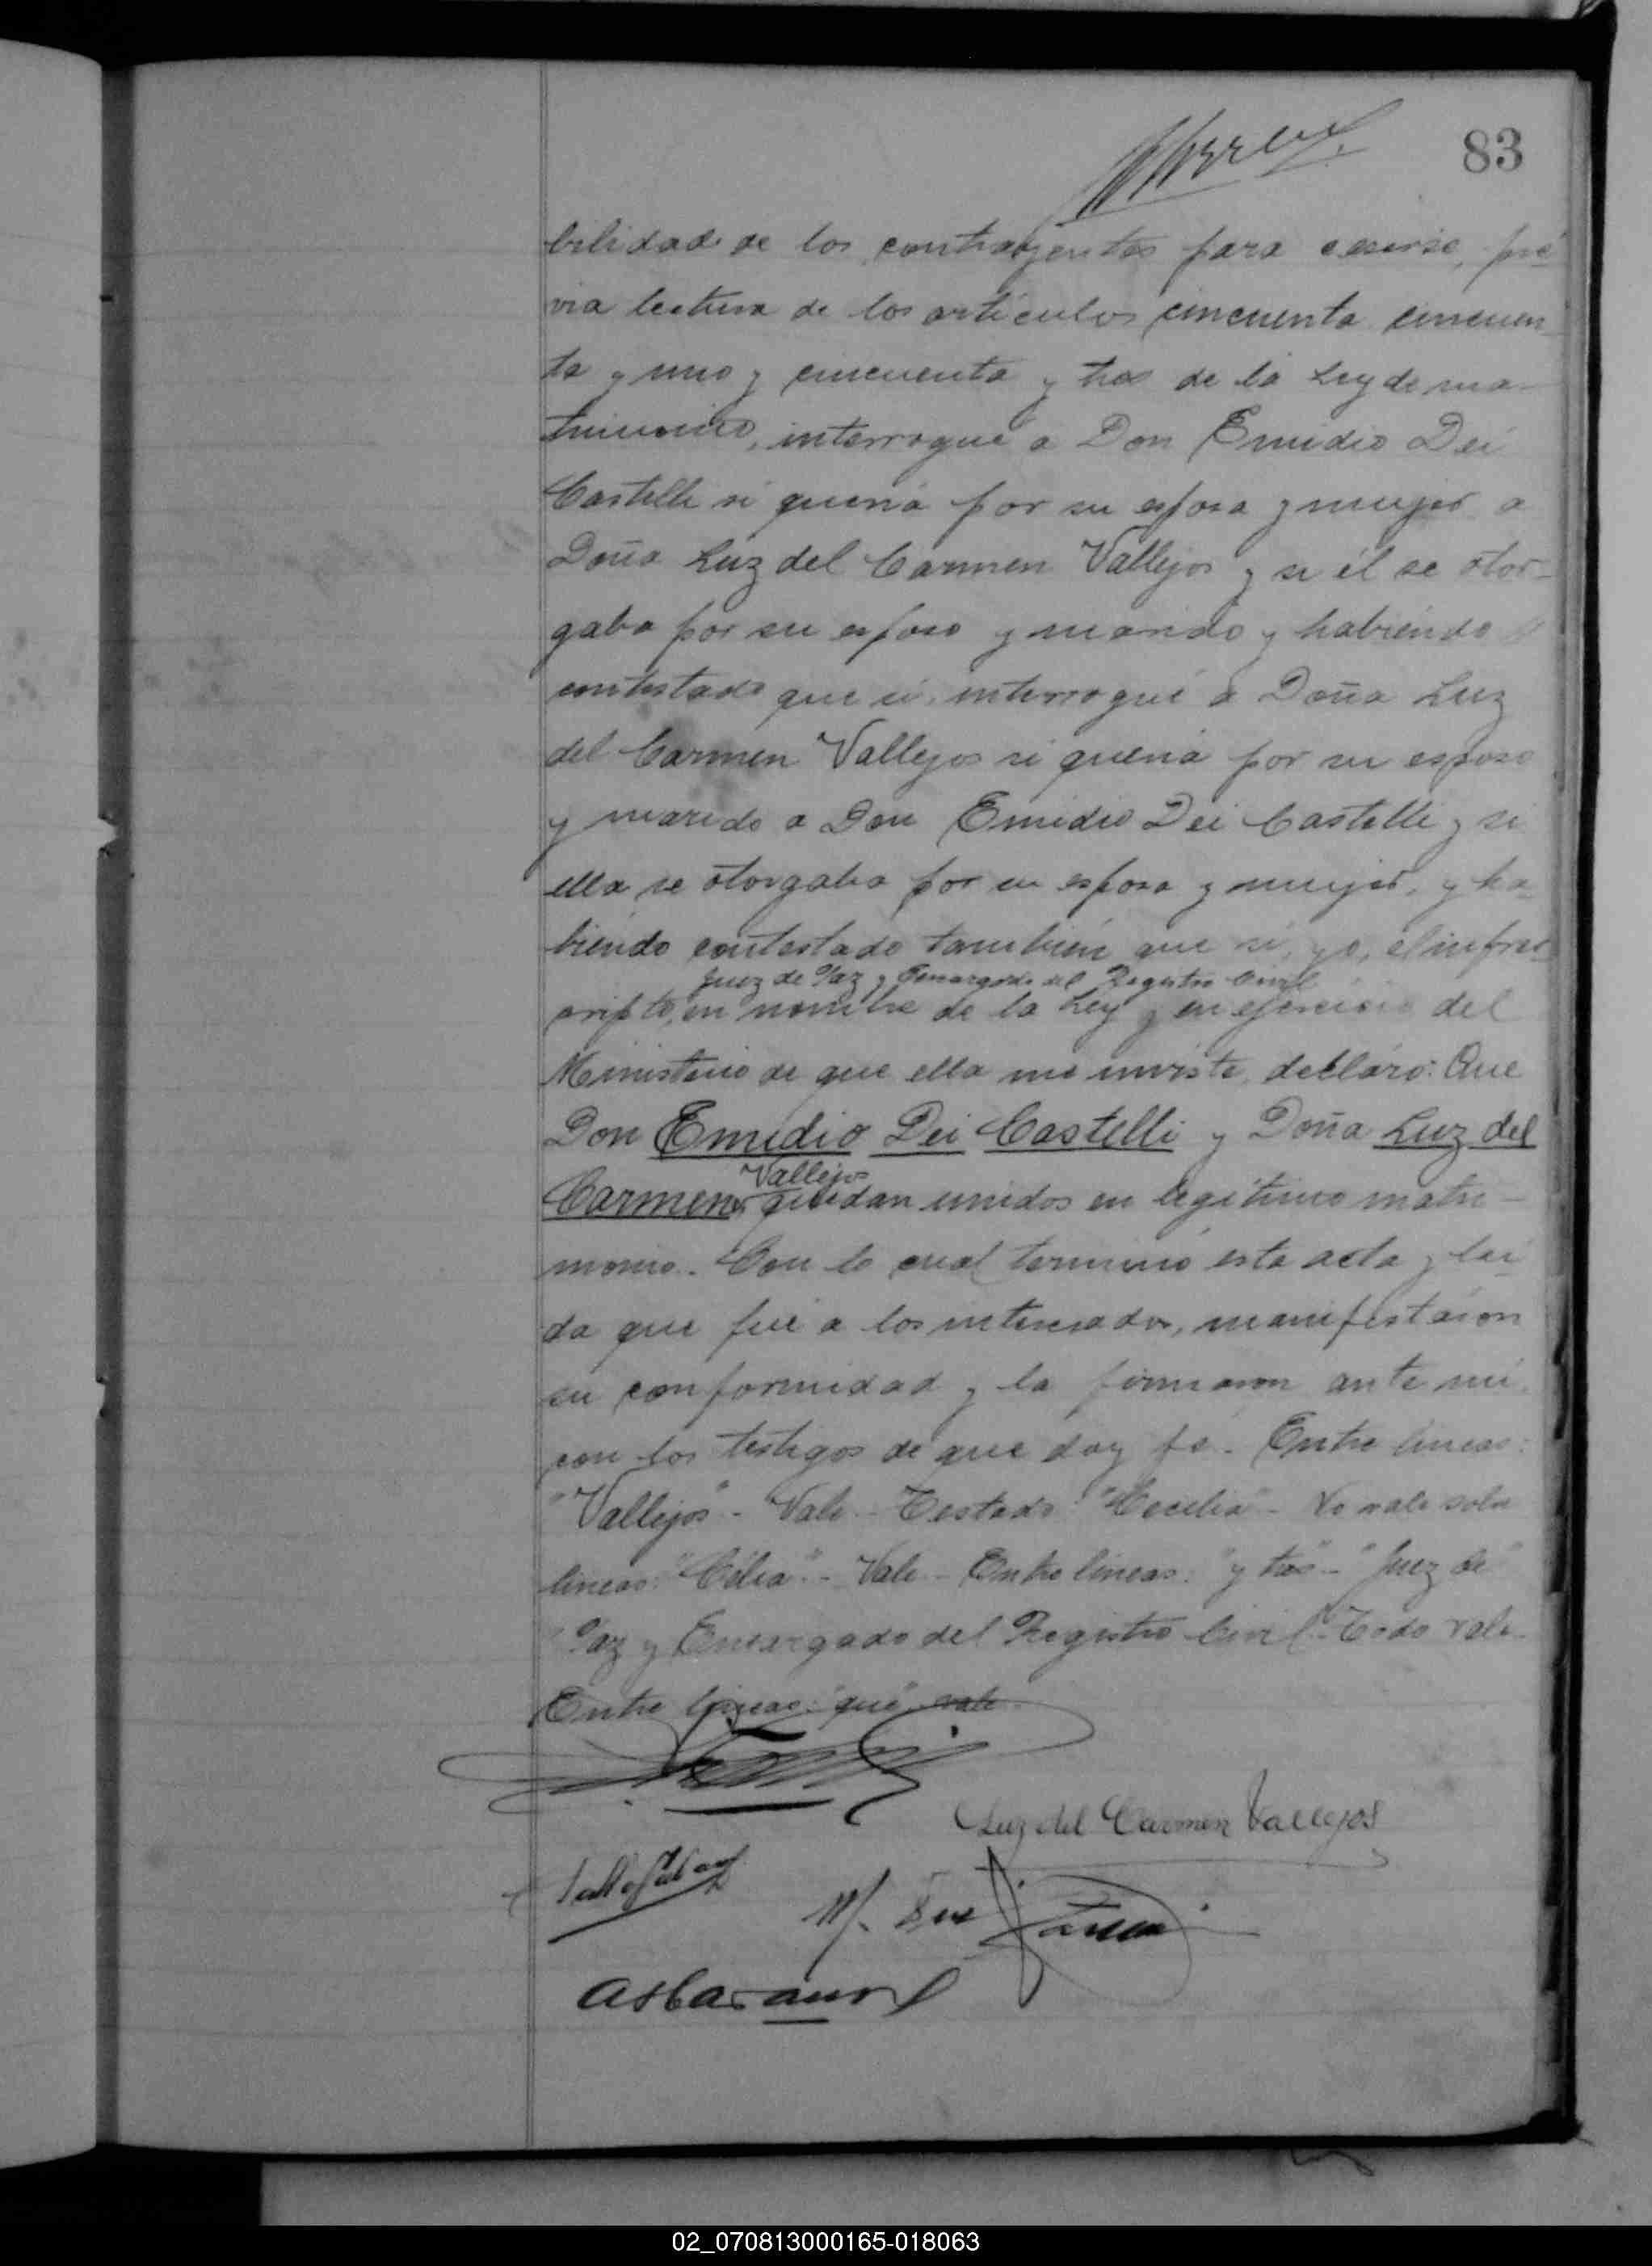 83
bilidad de los contrayentes para casarse, pré
via lectura de los artículos cincuenta cincuen
ta y uno y cincuenta y tres de la Ley de ma-
trimonio, interrogué a Don Emidio Dei
Castelli si quería por su esposa y mujer a
Doña Luz del Carmen Vallejos y si él se otor-
gaba por su esposo y marido y habiendo
contestado que si, interrogué a Doña Luz
del Carmen Vallejos si quería por su esposo
y marido a Don Emidio Dei Castelli y si
ella se otorgaba por su esposa y mujer, y ha-
biendo contestado también que sí, yo, el infras-
Juez de Paz y Encargado del Registro Civil
cripto, en nombre de la Ley y en ejercicio del
Ministerio de que ella me inviste, declaro: Que
Don Emidio Dei Castelli y Doña Luz del
Vallejos
Carmen quedan unidos en legítimo matri-
monio. Con lo cual terminó esta acta y leí
da que fué a los interesados, manifestaron
su conformidad y la firmaron ante mí
con los testigos de que doy fé. Entre líneas:
"Vallejos" - Vale - Testado: "Cecilia" - No vale sobre
líneas: "Célia" - Vale - Entre líneas: "y tres" - "Juez de"
"Paz y Encargado del Registro Civil" - Todo vale
Entre líneas: "que" vale
Luz del Carmen Vallejos
02_070813000165-018063